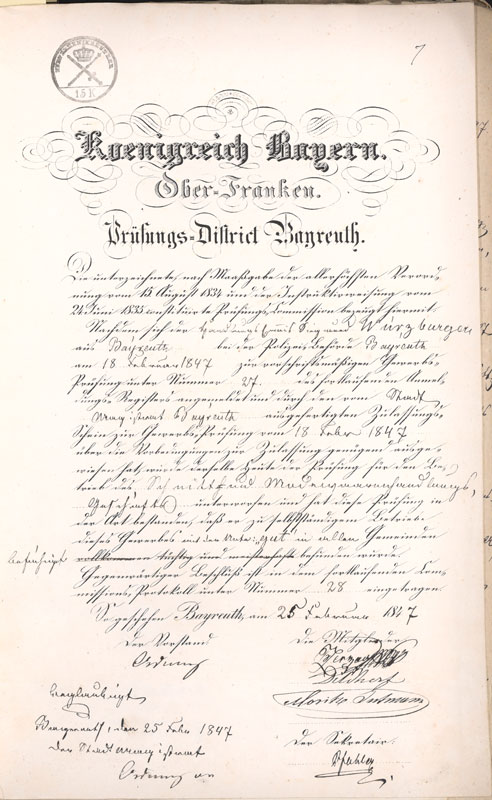 7
15 K
Koenigreich Bayern.
Ober-Franken.
Prüfungs-District Bayreuth.
Die unterzeichnete, nach Maaßgabe der allerhöchsten Verord-
nung vom 15 August 1834 und der Instructivweisung vom
24 Juni 1835 constituirte Prüfungs-Commission bezeugt hiermit:
Nachdem sich der Würzburger
aus Bayreuth bei der Polizei-Behörde Bayreuth
am 18 Februar 1847 zur vorschriftsmäßigen Gewerbs-
Prüfung unter Nummer 27. des fortlaufenden Anmel-
dungs-Registers angemeldet und durch den vom Stadt
magistrat Bayreuth ausgefertigten Zulassungs-
Schein zur Gewerbs-Prüfung vom 18 Febr 1847
über die Vorbedingungen zur Zulassung genügend ausge-
wiesen hat, wurde derselbe heute der Prüfung für den Be-
trieb des Schnitt und Modewaarenhandlungs,
Geschäfts unterworfen und hat diese Prüfung in
der Art bestanden, daß er zu selbstständigem Betriebe
dieses Gewerbes mit der Note: gut in allen Gemeinden
befähigt
vollkommen tüchtig und befunden wurde.
Gegenwärtiger Beschluß ist in dem fortlaufenden Com-
missions-Protokoll unter Nummer 28 eingetragen.
So geschehen Bayreuth, am 25 Februar 1847
Der Vorstand
Die Mitglieder
Moritz
Beglaubigt
Bayreuth, den 25 Febr 1847
Der Stadtmagistrat
Der Sekretair: